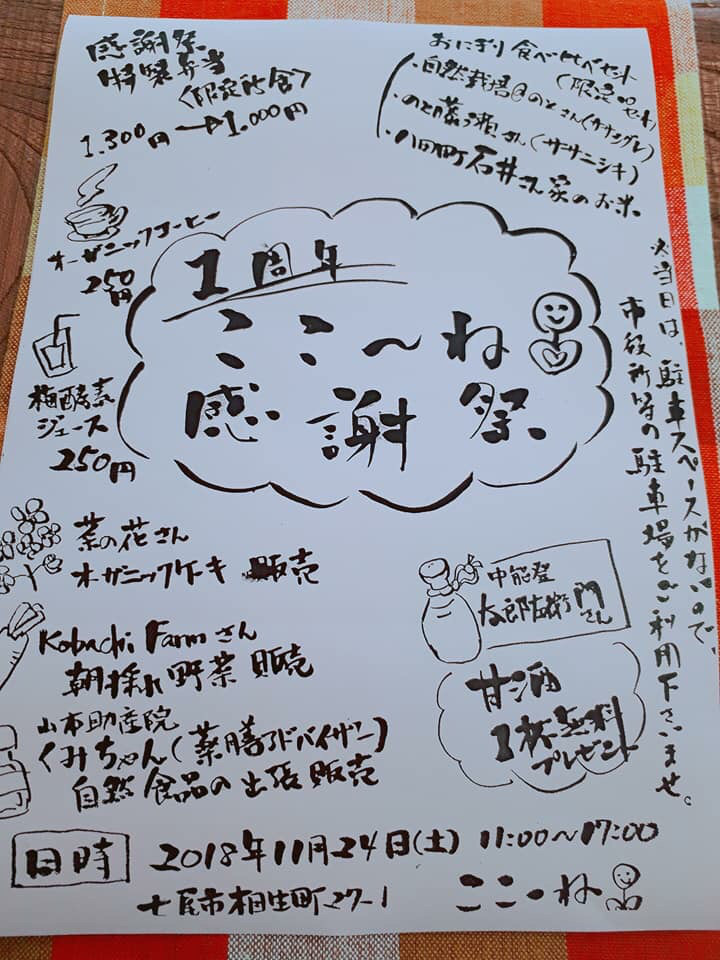 感謝祭
特製弁当
〈限定10食〉
1.300円→1.000円
おにぎり食べ比べセット
(限定 セット)
・自然栽培@のとさん(ササシグレ)
・のと藤瀬さん(ササニシキ)
・八田町石井さん家のお米
オーガニックコーヒー
250円
1周年
ここ〜ね
感謝祭
梅酵素
ジュース
250円
※当日は、駐車スペースがないので、
市役所等の駐車場をご利用下さいませ。
菜の花さん
オーガニックケーキ 販売
中能登
太郎右衛門さん
Kobachi Farmさん
朝採れ野菜販売
甘酒
1杯無料
プレゼント
山本助産院
くみちゃん(薬膳アドバイザー)
自然食品の出張販売
日時
2018年11月24日(土) 11:00〜17:00
七尾市相生町27-1 ここーね